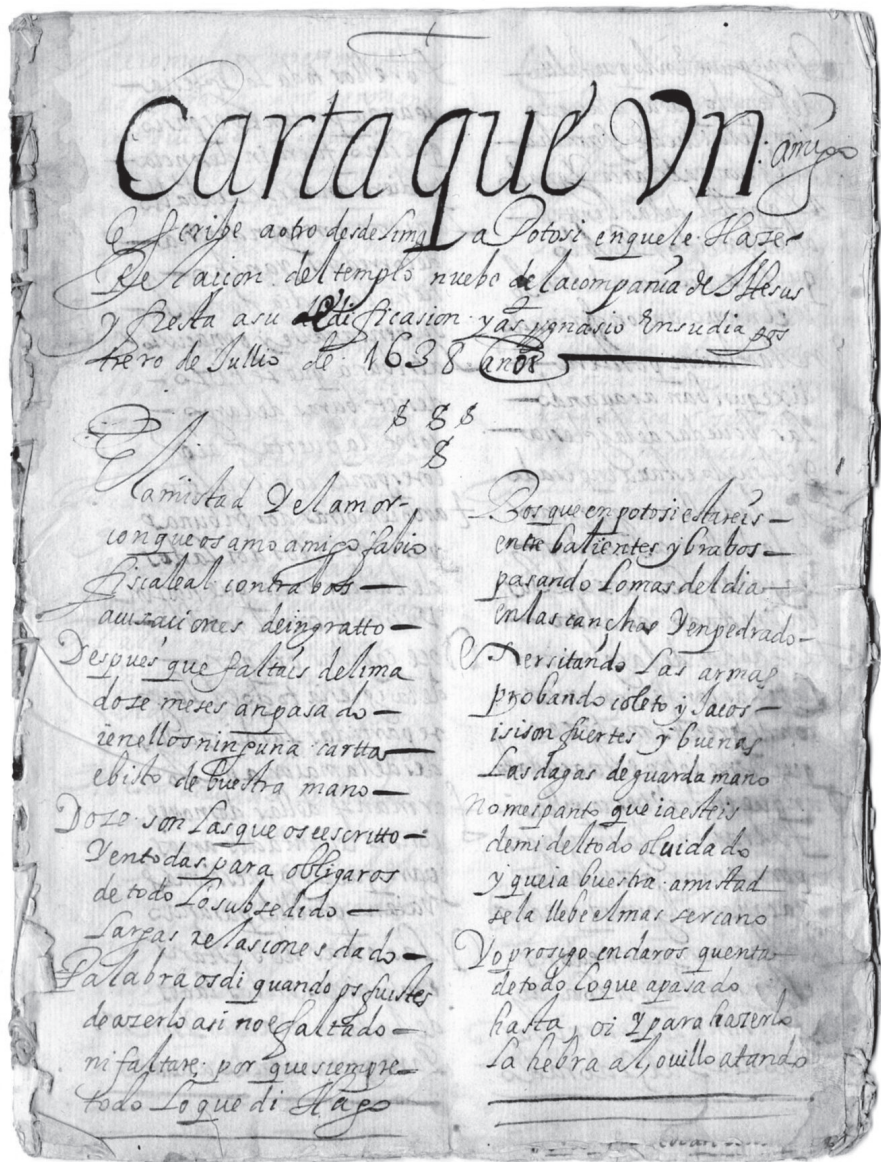 Carta que Vn amigo
Escribe aotro desdeLima a Potosi enquele Haze
Relacion deltemplo nuebo de lacompania de Jhesus
y fiesta asu edificasion y a s ygnasio Ensudia pos
trero de Jullio de 1638 años
La amistad Yelamor
conqueosamo amigo fabio
fiscaleal contra bos
acuzaciones deingratto
Despues que faltais delima
doze meses anpasado
ienellosninguna cartta
ebisto de buestra mano
Doze son Lasque oseescritto
Yentodas para obligaros
de todo Losubsedido
Largas relasiones dado
Palabra osdi quando os fuistes
deazerlo asi noefaltado
ni faltare por quesiempre
todo Loque di Hago
Bos que en potosi estareis
entre balientes y brabos
pasando Lomas deldia
enlas canchas Yenpedrado
Exersitando Las armas
probando coleto y Jacos
isison fuertes y buenas
Las dagas de guarda mano
Nomespanto que iaesteis
demi deltodo oluidado
y queia buestra amistad
sela llebe elmas sercano
Yo prosigo endaros quenta
detodo Loque apasado
hasta oi Y para hazerlo
La hebra al ouillo atando